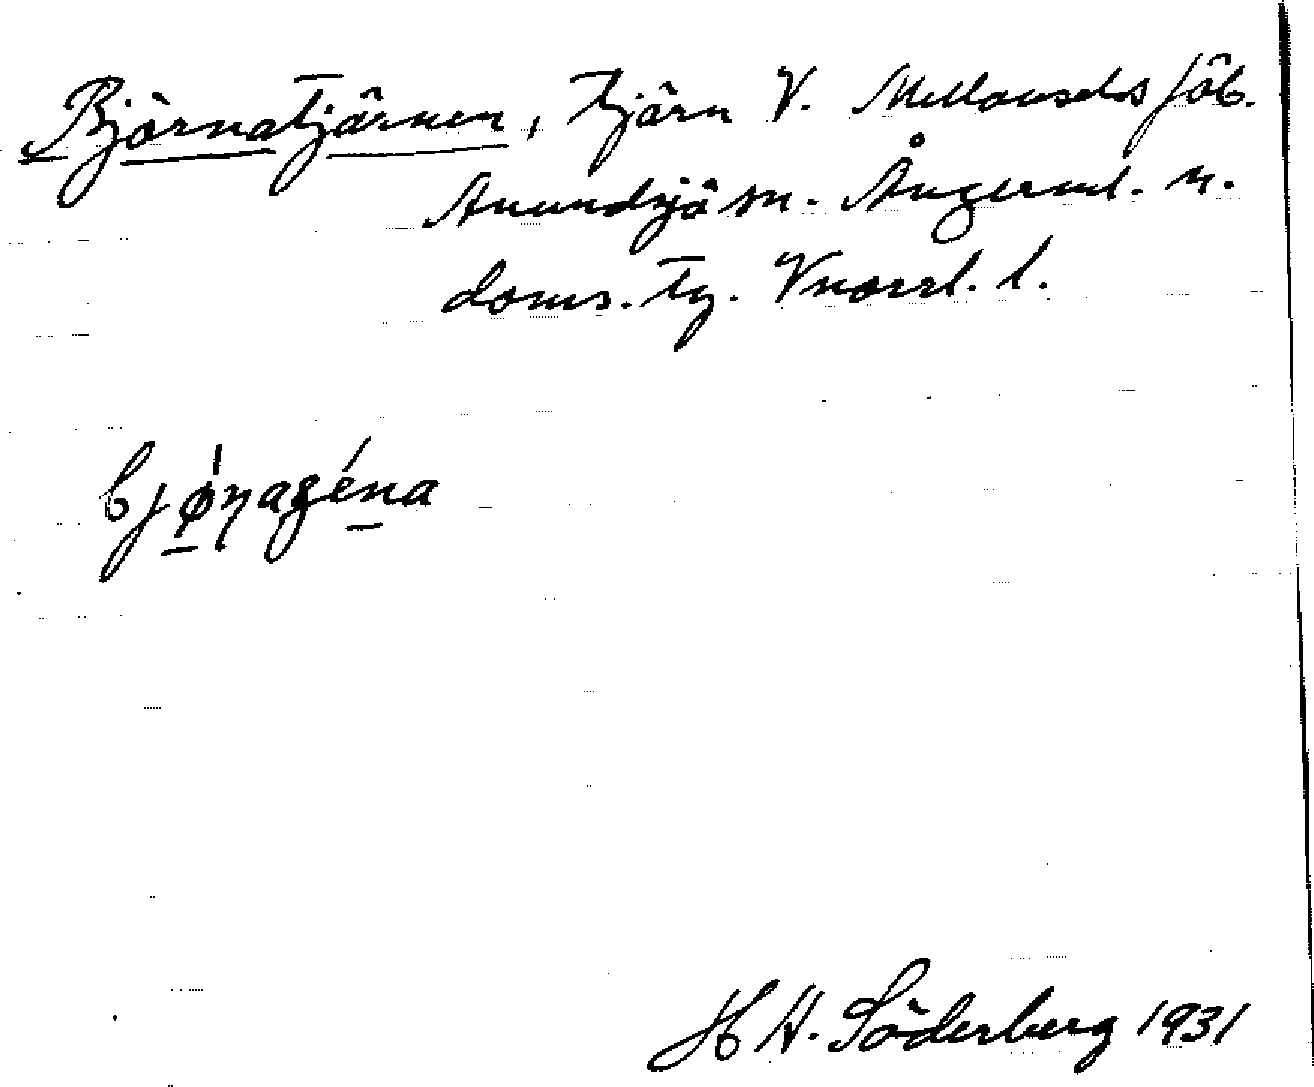 Björnatjärnen, tjärn V. Mellansels fäb.
Anundsjö sn. Ångerml. n.
doms. Tg. Vnorrl. l.
bjønagéna
H H. Söderberg 1931